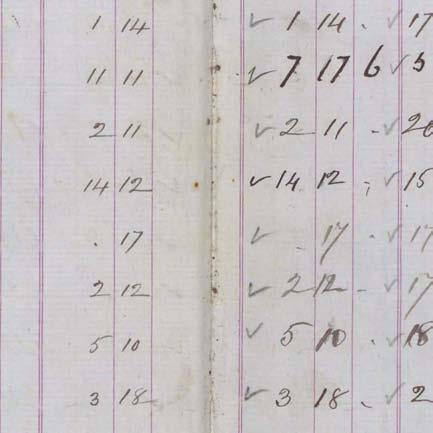 1 14 ✓ 1 14 - ✓ 17
11 11 ✓ 7 17 6 ✓ 5
2 11 ✓ 2 11 - ✓ 20
14 12 ✓ 14 12 ; ✓ 15
. 17 ✓ - 17 - ✓ 17
2 12 ✓ 2 12 - ✓ 17
5 10 ✓ 5 10 . ✓ 18
3 18 ✓ 3 18 - ✓ 2